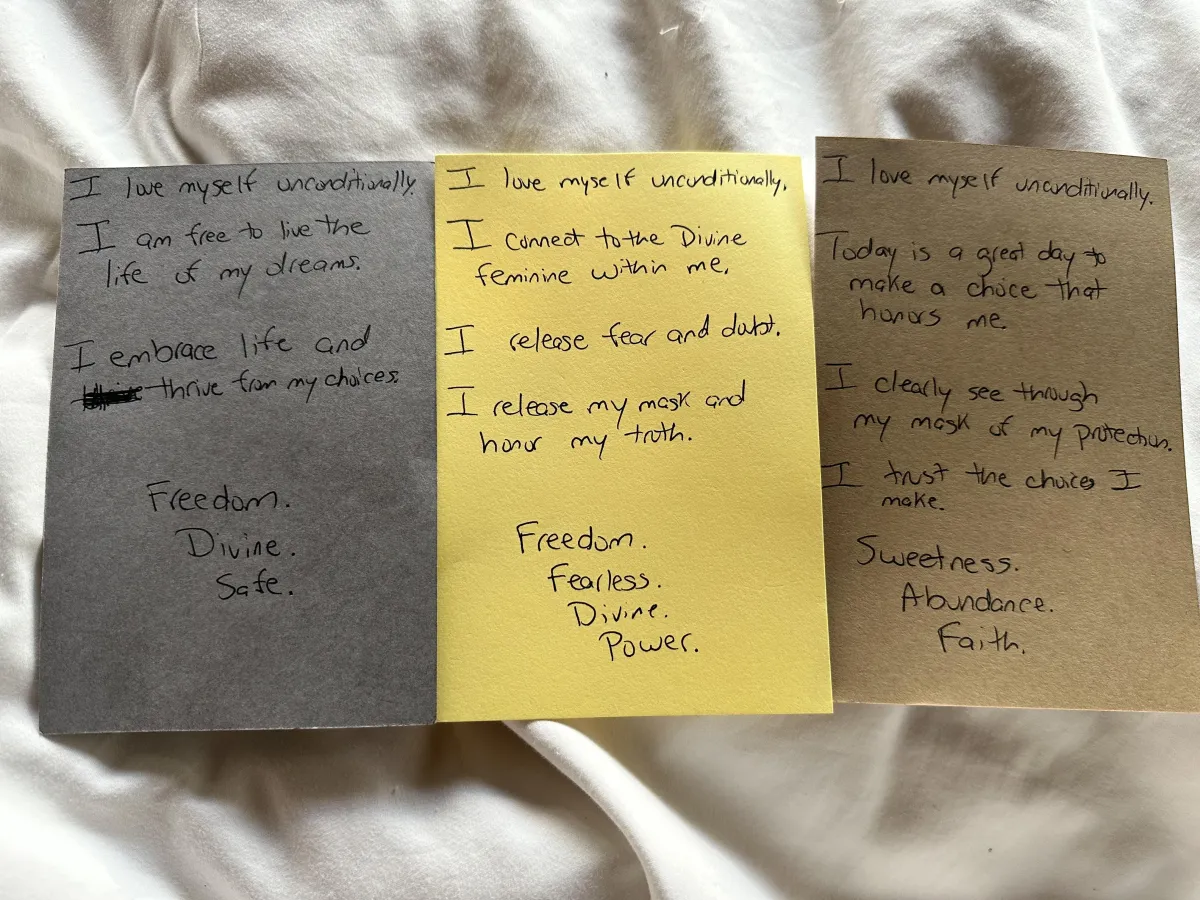 I love myself unconditionally.
I am free to live the
life of my dreams.
I embrace life and
thrive from my choices.
Freedom.
Divine.
Safe.
I love myself unconditionally.
I connect to the Divine
feminine within me.
I release fear and doubt.
I release my mask and
honor my truth.
Freedom.
Fearless.
Divine.
Power.
I love myself unconditionally.
Today is a great day to
make a choice that
honors me.
I clearly see through
my mask of my protection.
I trust the choices I
make.
Sweetness.
Abundance.
Faith.